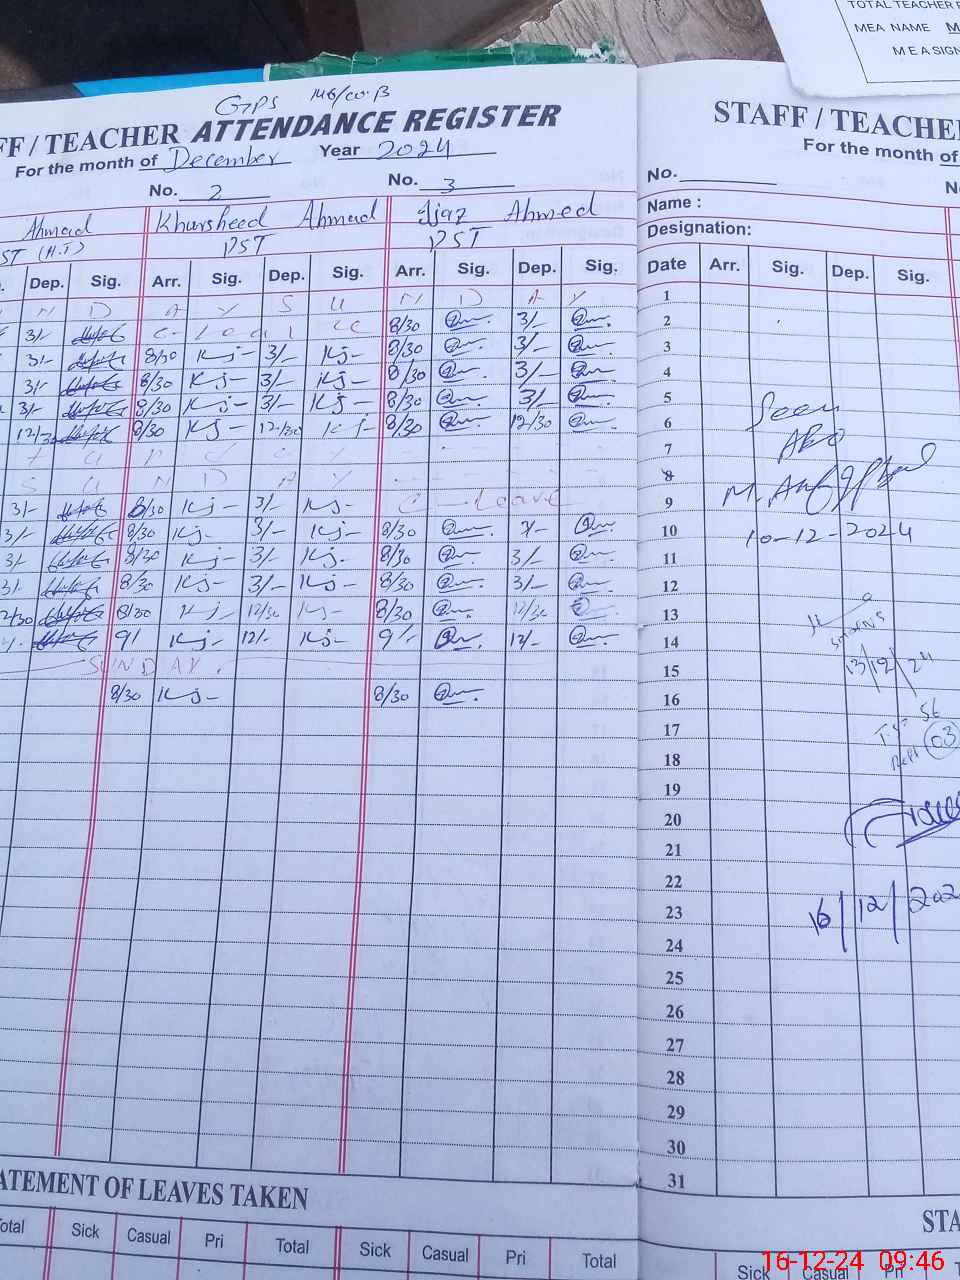 TOTAL TEACHER
MEA NAME M
M E A SIGN
GPS 146/CC.B
FF / TEACHER ATTENDANCE REGISTER
For the month of December Year 2024
No. 2 No. 3
Ahmad Khursheed Ahmad Ijaz Ahmed
ST (H.T) PST PST
Dep. Sig. Arr. Sig. Dep. Sig. Arr. Sig. Dep. Sig.
N D A Y S U N D A Y
3/- C-Leave 8/30 3/-
3/- 8/30 Kj- 3/- Kj- 8/30 3/-
3/- 8/30 Kj- 3/- Kj- 8/30 3/-
3/- 8/30 Kj- 3/- Kj- 8/30 3/-
12/30 8/30 Kj- 12/30 Kj- 8/30 12/30
S U N D A Y
3/- 8/30 Kj- 3/- Kj- C-Leave
3/- 8/30 Kj- 3/- Kj- 8/30
3/- 8/30 Kj- 3/- Kj- 8/30 3/-
3/- 8/30 Kj- 3/- Kj- 8/30 3/-
2/30 8/30 Kj- 12/30 Kj- 8/30 12/30
9/ Kj- 12/- Kj- 9/- 12/-
SUNDAY.
8/30 Kj- 8/30
ATEMENT OF LEAVES TAKEN
otal Sick Casual Pri Total Sick Casual Pri Total
STAFF / TEACHE
For the month of
No. N
Name :
Designation:
Date Arr. Sig. Dep. Sig.
1
2
3
4
5
6
7
8
9
10
11
12
13
14
15
16
17
18
19
20
21
22
23
24
25
26
27
28
29
30
31
Seen
AEO
10-12-2024
13/12/24
03
16/12/202
STA
Sick Casual Pri T
16-12-24 09:46